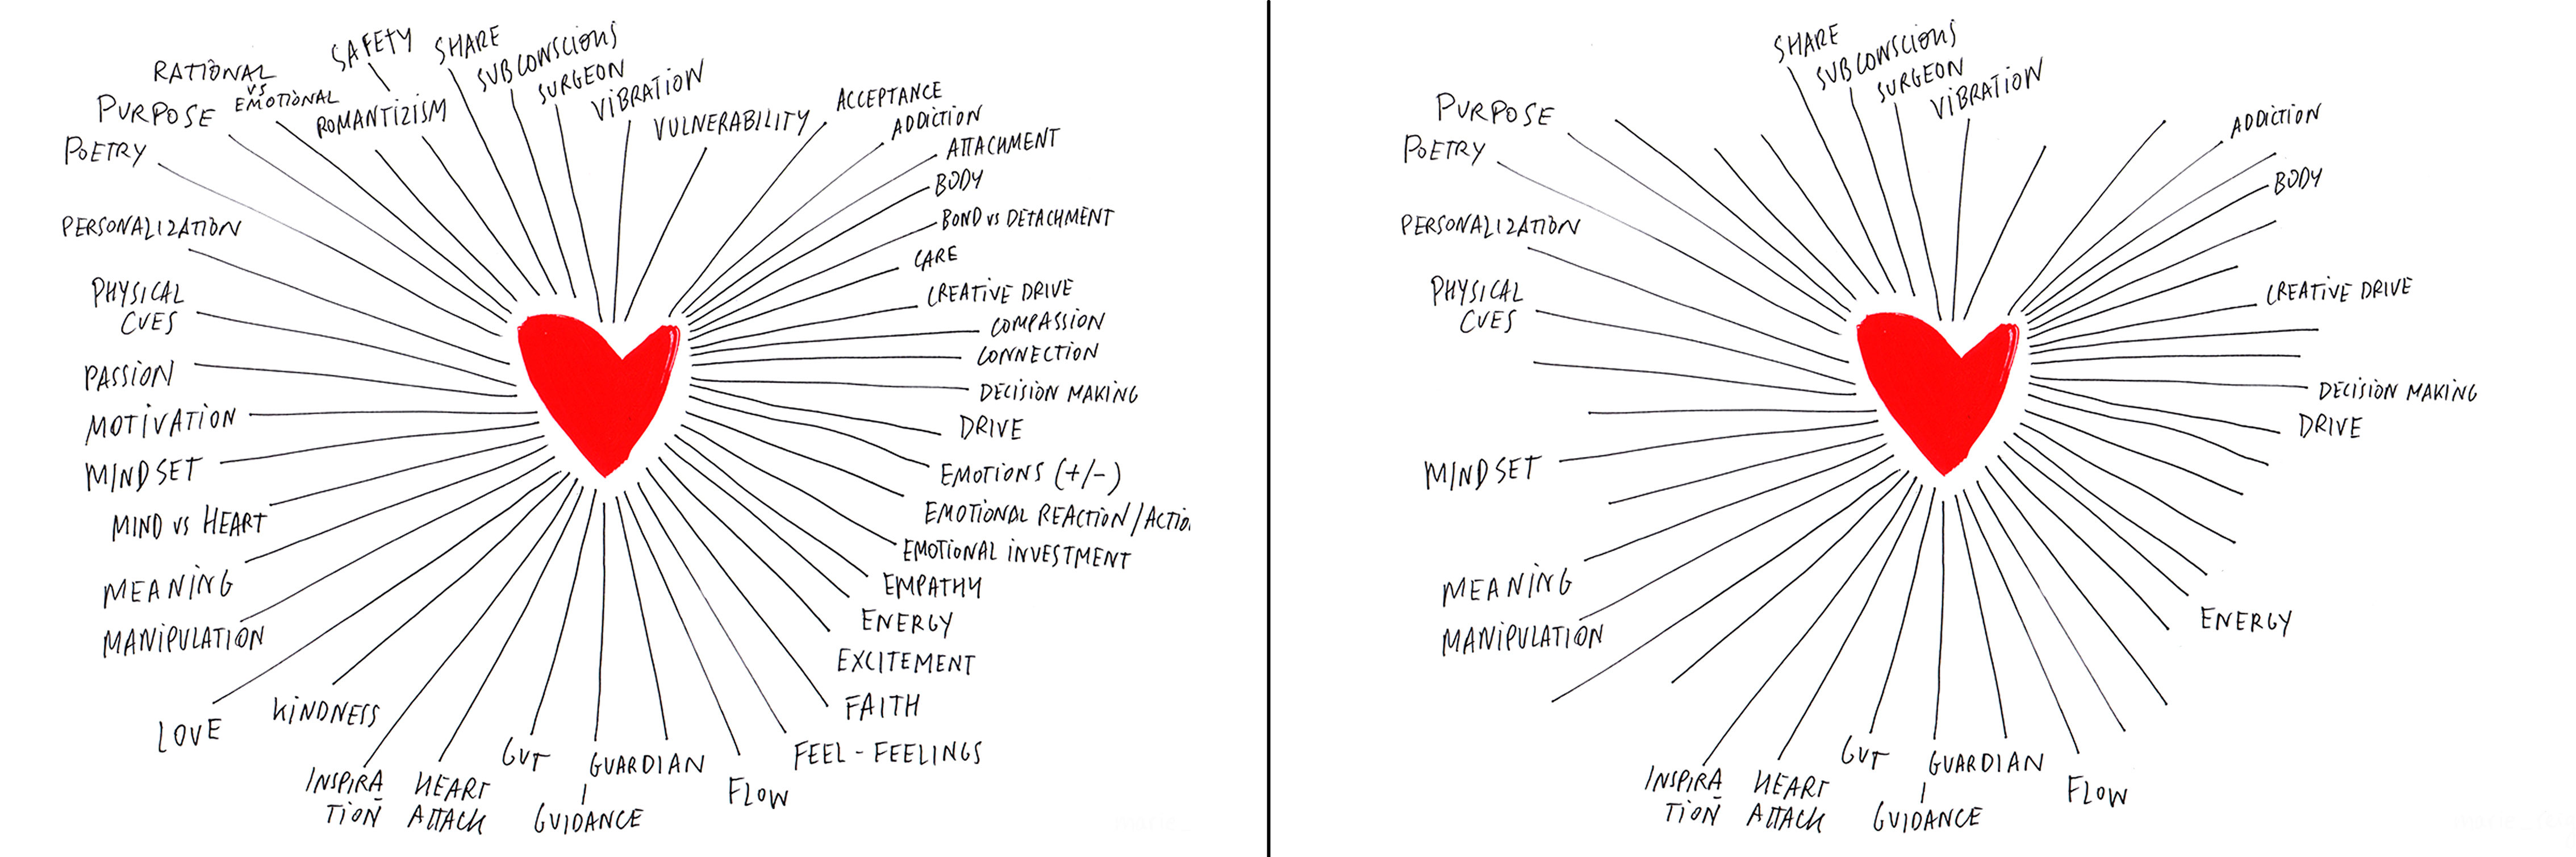 SAFETY
SHARE
SUBCONSCIOUS
SURGEON
VIBRATION
VULNERABILITY
RATIONAL
VS
EMOTIONAL
ROMANTIZISM
PURPOSE
POETRY
PERSONALIZATION
PHYSICAL
CUES
PASSION
MOTIVATION
MINDSET
MIND VS HEART
MEANING
MANIPULATION
LOVE
KINDNESS
INSPIRA
TION
HEART
ATTACK
GUT
GUARDIAN
GUIDANCE
FLOW
FEEL - FEELINGS
FAITH
EXCITEMENT
ENERGY
EMPATHY
EMOTIONAL INVESTMENT
EMOTIONAL REACTION/ACTIO
EMOTIONS (+/-)
DRIVE
DECISION MAKING
CONNECTION
COMPASSION
CREATIVE DRIVE
CARE
BOND VS DETACHMENT
BODY
ATTACHMENT
ADDICTION
ACCEPTANCE
SHARE
SUBCONSCIOUS
SURGEON
VIBRATION
PURPOSE
POETRY
PERSONALIZATION
PHYSICAL
CUES
MINDSET
MEANING
MANIPULATION
INSPIRA
TION
HEART
ATTACK
GUT
GUARDIAN
GUIDANCE
FLOW
ENERGY
DRIVE
DECISION MAKING
CREATIVE DRIVE
BODY
ADDICTION